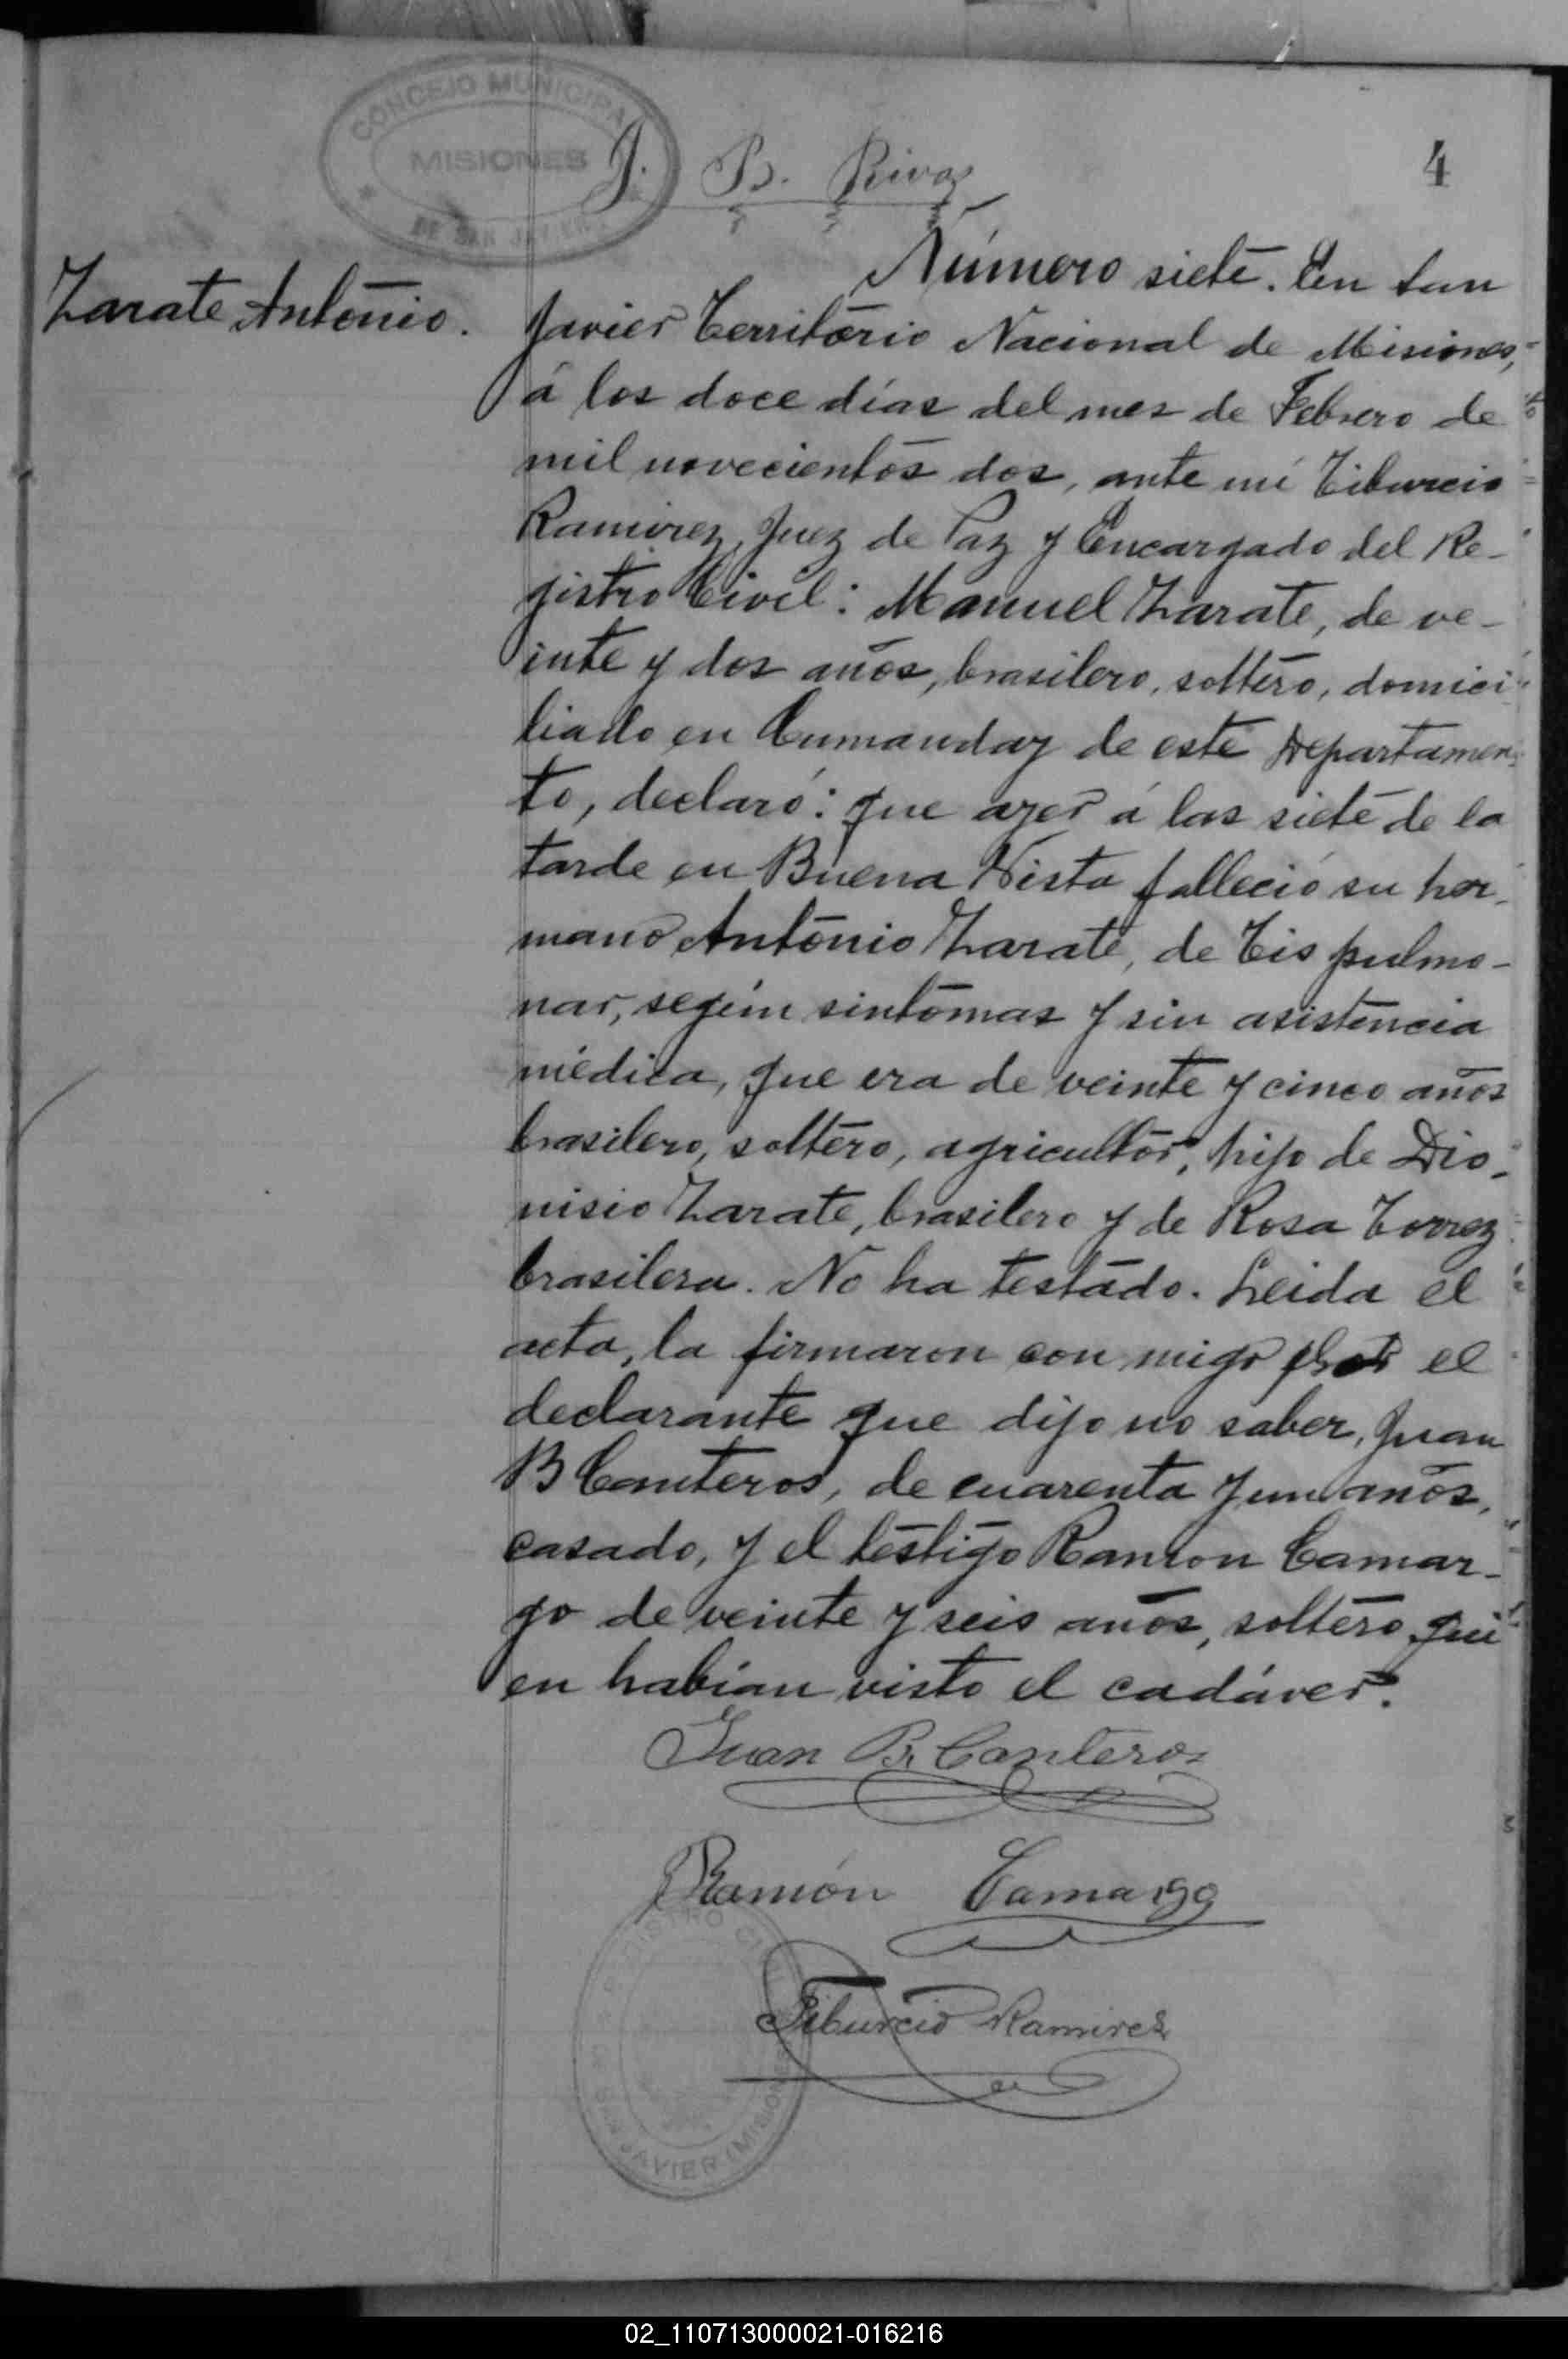 CONCEJO MUNICIPAL
MISIONES
DE SAN JAVIER
J. B. Rivas
4
Zarate Antonio.
Número siete. En San
Javier Territorio Nacional de Misiones,
á los doce días del mes de Febrero de
mil novecientos dos, ante mí Tiburcio
Ramirez, Juez de Paz y Encargado del Re-
gistro Civil: Manuel Zarate, de ve-
inte y dos años, brasilero, soltero, domici
liado en Cumanday de este Departamen-
to, declaró: que ayer á las siete de la
tarde en Buena Vista falleció su her-
mano Antonio Zarate, de Tis pulmo-
nar, según sintomas y sin asistencia
médica, que era de veinte y cinco años
brasilero, soltero, agricultor, hijo de Dio-
nisio Zarate, brasilero y de Rosa Torrez
brasilera. No ha testado. Leida el
acta, la firmaron con migo por el
declarante que dijo no saber, Juan
B Canteros, de cuarenta y un años,
casado, y el testigo Ramon Camar-
go de veinte y seis años, soltero, qui
en habían visto el cadáver.
Juan B. Canteros
Ramón Camargo
Tiburcio Ramirez
REGISTRO CIVIL
SAN JAVIER (MISIONES)
02_110713000021-016216